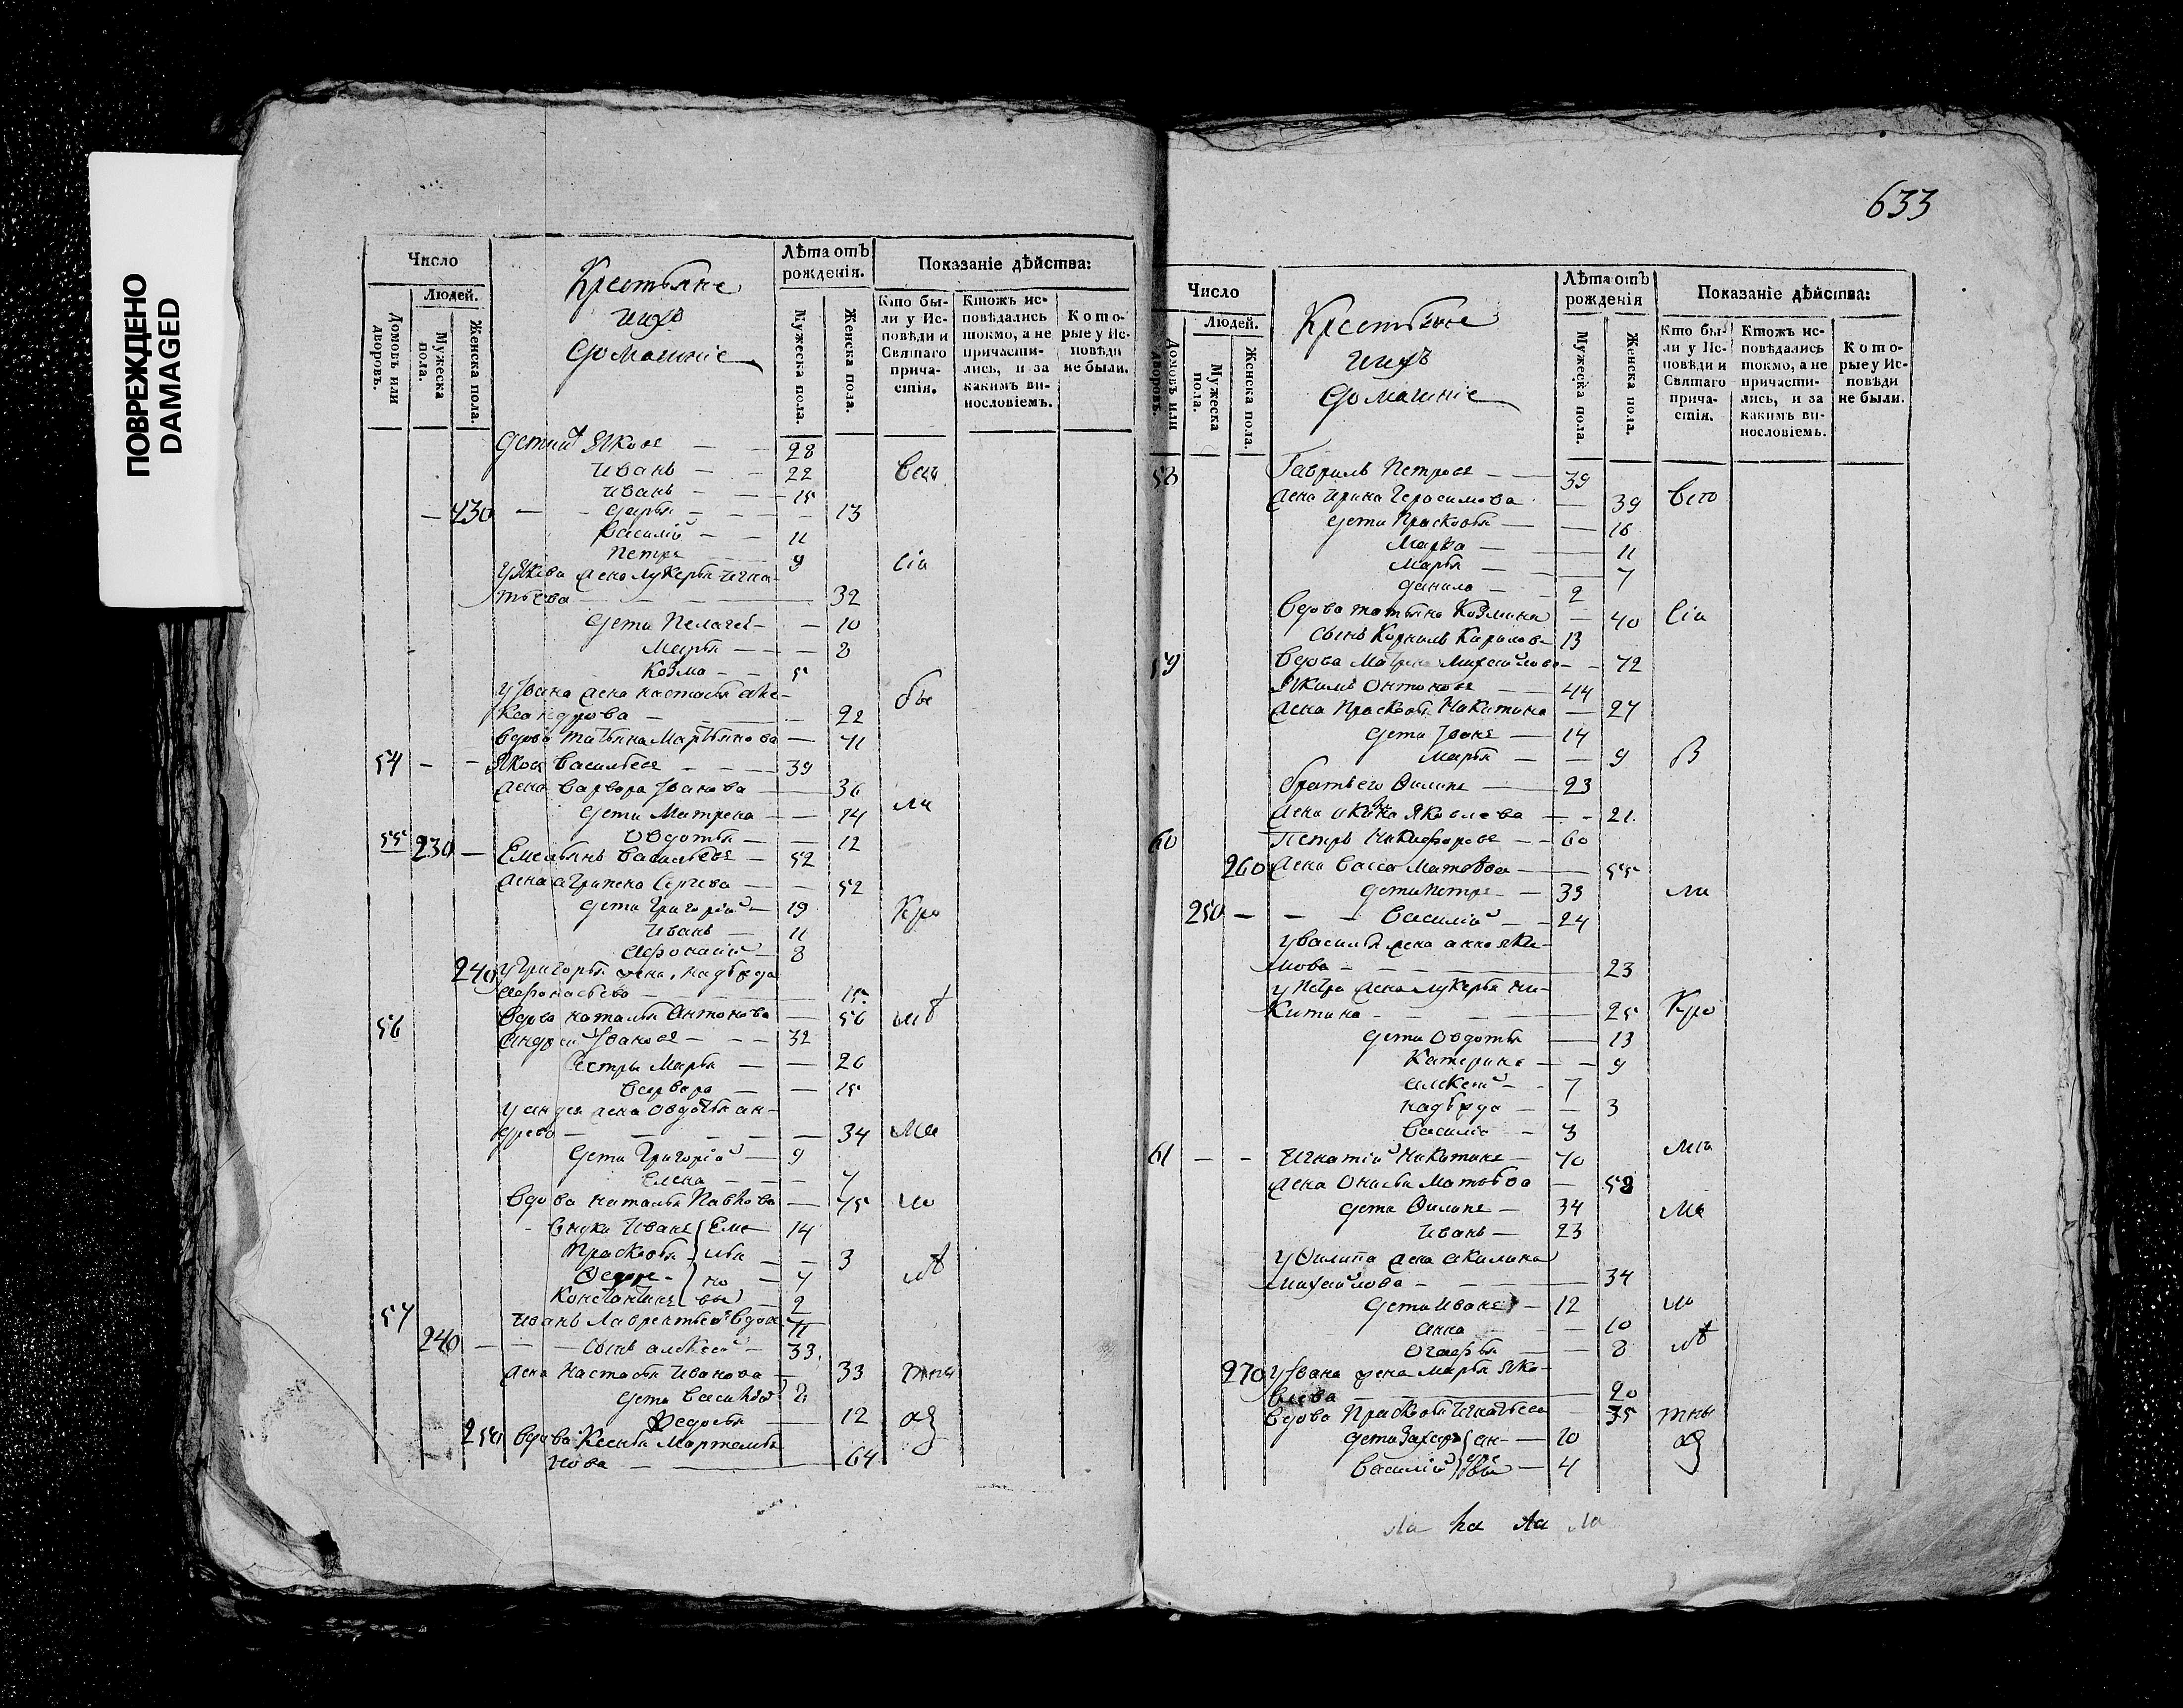 ПОВРЕЖДЕНО
DAMAGED
Число
Людей.
Домовъ или дворовъ.
Мужеска пола.
Женска пола.
Крестьяне
ихъ
домашніе
Лѣта отъ рожденія.
Мужеска пола.
Женска пола.
Показаніе дѣйства:
Кто бы-
ли у Ис-
повѣди и
Святаго
прича-
стія.
Ктожъ ис-
повѣдались
токмо, а не
причасти-
лись, и за
какимъ ви-
нословіемъ.
Кото-
рые у Ис-
повѣди
не были.
Яковъ — 28
Иванъ — 22
Иванъ — 15
230 — Дарья — 13
Василій — 11
Петръ 9 сіи
у Якова жена Лукерья Игна-
тьева — 32
дети Пелагея — 10
Марья — 8
Козма — 5
у Ивана жена Настасья Але-
ксандрова — 22
вдова Татьяна Мартынова — 71
54 — Яковъ Васильевъ — 39
жена Варвара Иванова — 36
дети Матрена — 14 ли
Овдотья — 12
55 230 — Емельянъ Васильевъ — 52
жена Агрипена Сергева — 52
дети Григорій — 19 кро
Иванъ — 11
Афонасій — 8
240 у Григорья жена Надежда
Афонасьева — 15
56 вдова Наталья Антонова — 56
Андрей Ивановъ — 32
сестры Марья — 26
Варвара — 15
у Андрея жена Овдотья Ан-
древа — 34 ми
дети Григорій — 9
Елена — 7
вдова Наталья Павлова — 75 ло
внуки Иванъ Еме- 14
Прасковья лья — 3
Федоръ но — 7
Константинъ вы — 2
57 Иванъ Лаврентьевъ вдовъ 71
240 — сынъ Алексей — 33
жена Настасья Иванова — 33 тны
дети Василій 2
Федосья — 12
250 вдова Ксенья Мартемья-
нова — 64
633
Число
Людей.
Домовъ или дворовъ.
Мужеска пола.
Женска пола.
Крестьяне
ихъ
домашніе
Лѣта отъ рожденія
Мужеска пола.
Женска пола.
Показаніе дѣйства:
Кто бы-
ли у Ис-
повѣди и
Святаго
прича-
стія.
Ктожъ ис-
повѣдались
токмо, а не
причасти-
лись, и за
какимъ ви-
нословіемъ.
Кото-
рые у Ис-
повѣди
не были.
58 Гаврилъ Петровъ — 39
жена Ирина Герасимова — 39
дети Прасковья — 16
Марѳа — 11
Марья — 7
Данило — 2
вдова Татьяна Козмина — 40 сіи
сынъ Корнилъ Кириловъ 13
59 вдова Матрена Михайлова — 72
Якимъ Онтоновъ — 44
жена Прасковья Никитина — 27
дети Иванъ — 14
Марья — 9
братъ его Филипъ — 23
жена Яковлева — 21
60 Петръ Никифоровъ — 60
260 жена Васса Матвѣва — 55
дети Петръ — 33 ли
250 — Василій — 24
у Василья жена Анна Яки-
мова — 23
у Петра жена Лукерья Ни-
китина — 25 кро
дети Овдотья — 13
Катерина — 9
Алексей — 7
Надежда — 3
Василій — 3
61 — Игнатій Никитинъ — 70 ми
жена Матвѣва — 58
дети Филипъ — 34
Иванъ — 23
у Филипа жена Акилина
Михайлова — 34
дети Иванъ — 12 ло
Анна — 10
— 8
270 у Ивана жена Марья Яко-
влева — 20
вдова Прасковья Игнатьева 35 тны
дети Захаръ ан- 10
Василій — 4